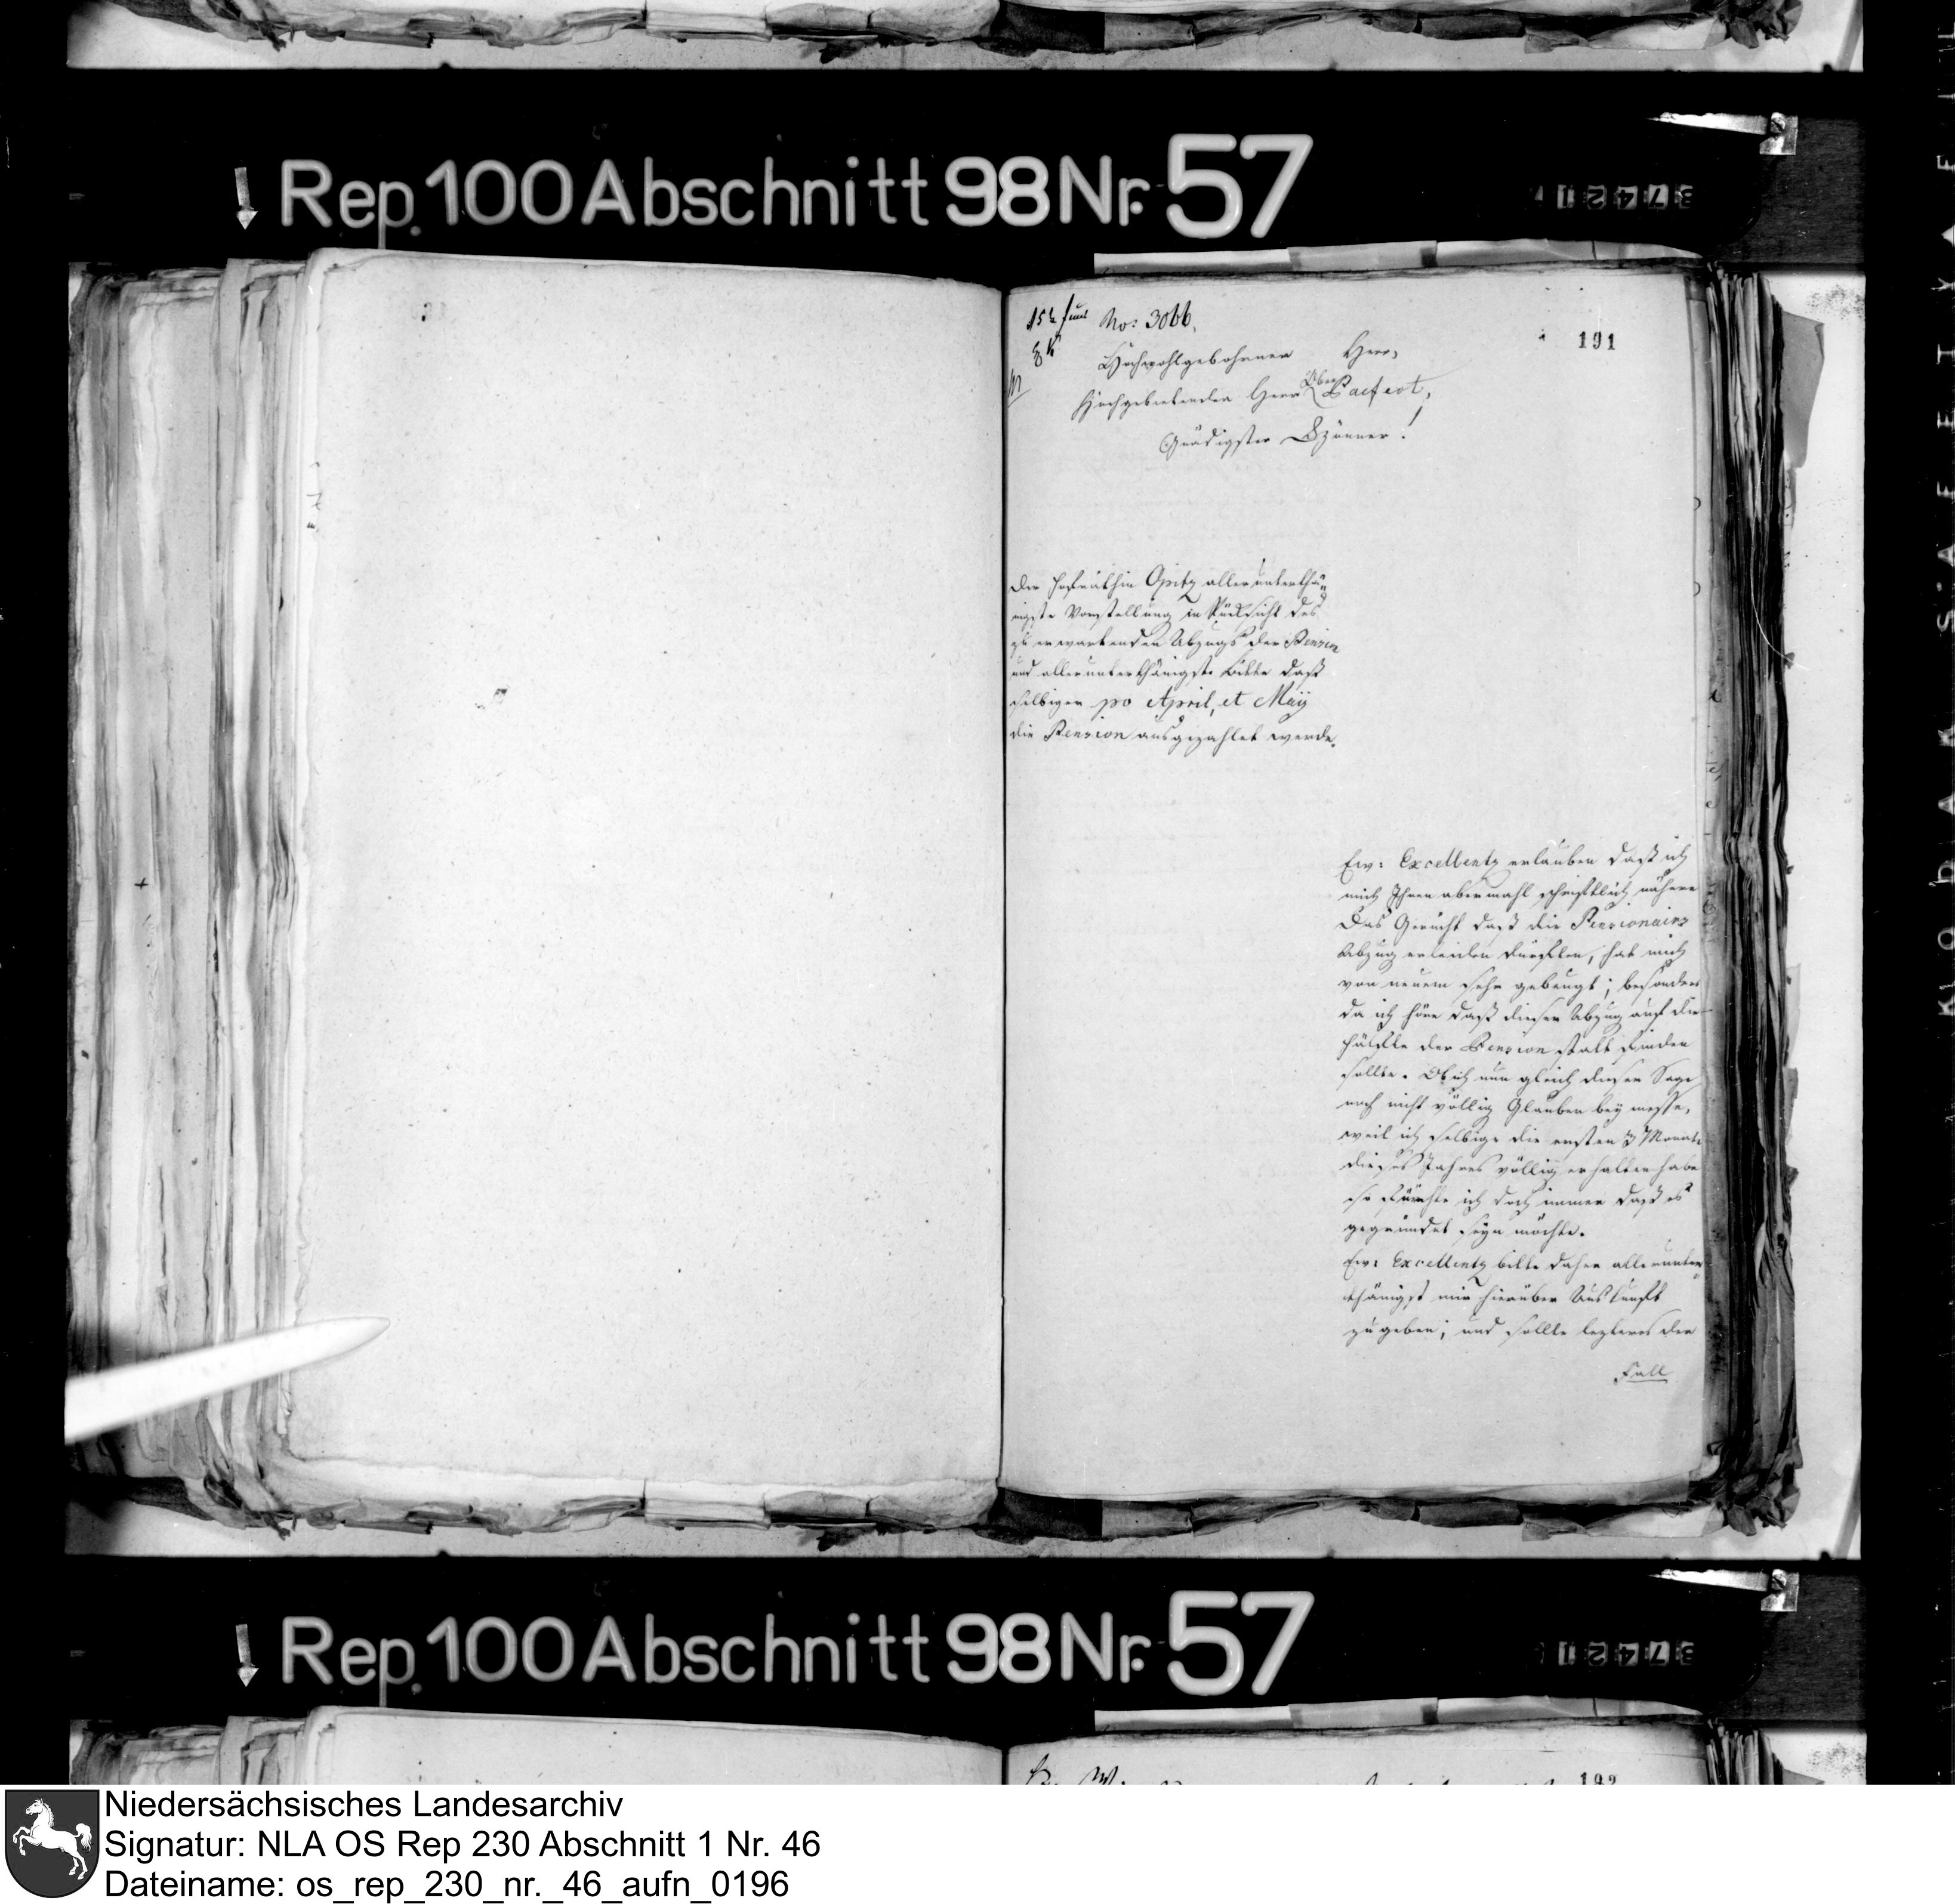 Rep. 100 Abschnitt 98 Nr. 57
37421
No: 3066.
191
Hochwohlgebohrner Herr,
Hochgebietender Herr Ober Paefect,
Gnädigster Gönner!
Der Hofräthin Opitz allerunterthä=
nigste Vorstellung in Rücksicht des
zu erwartenden Abzugs der Pension
und allerunterthänigste bitte daß
selbiger pro April, et Maÿ
die Pension ausgezahlet werde.
Ew: Excellentz erlauben daß ich
mich Ihnen abermahl schriftlich nähere
Das Gerücht daß die Pensionairs
Abzug erleiden dürften, hat mich
von neuem sehr gebeugt; besonders
da ich höre daß dieser Abzug auf die
hälfte der Pension statt finden
sollte. Ob ich nun gleich dieser Sage
noch nicht völlig Glauben bey messe,
weil ich selbige die ersten 3 Monate
dieses Jahres völlig erhalten habe
so fürchte ich doch immer daß es
gegründet seyn möchte.
Ew: Excellentz bitte daher allerunter=
thänigst mir hierüber Auskunft
zu geben; und sollte lezteres der
Fall
Rep. 100 Abschnitt 98 Nr. 57
37421
192
Niedersächsisches Landesarchiv
Signatur: NLA OS Rep 230 Abschnitt 1 Nr. 46
Dateiname: os_rep_230_nr._46_aufn_0196